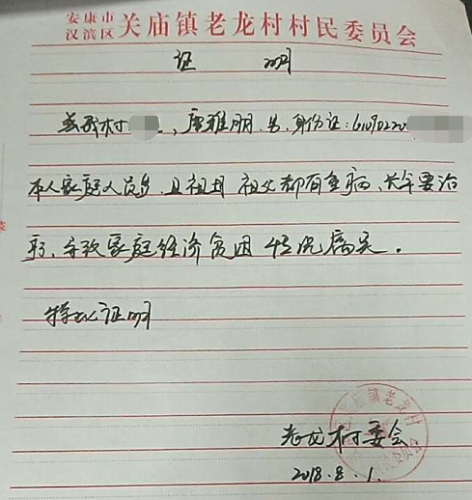 安康市
汉滨区 关庙镇老龙村村民委员会
证 明
兹我村 , 唐雅朋, 男, 身份证: 6109020
本人家庭人员多, 且祖母 祖父都有重病, 长年要治
疗, 导致家庭经济贫困 情况属实.
特此证明
关庙镇老龙村
老龙村委会
2018.8.1.